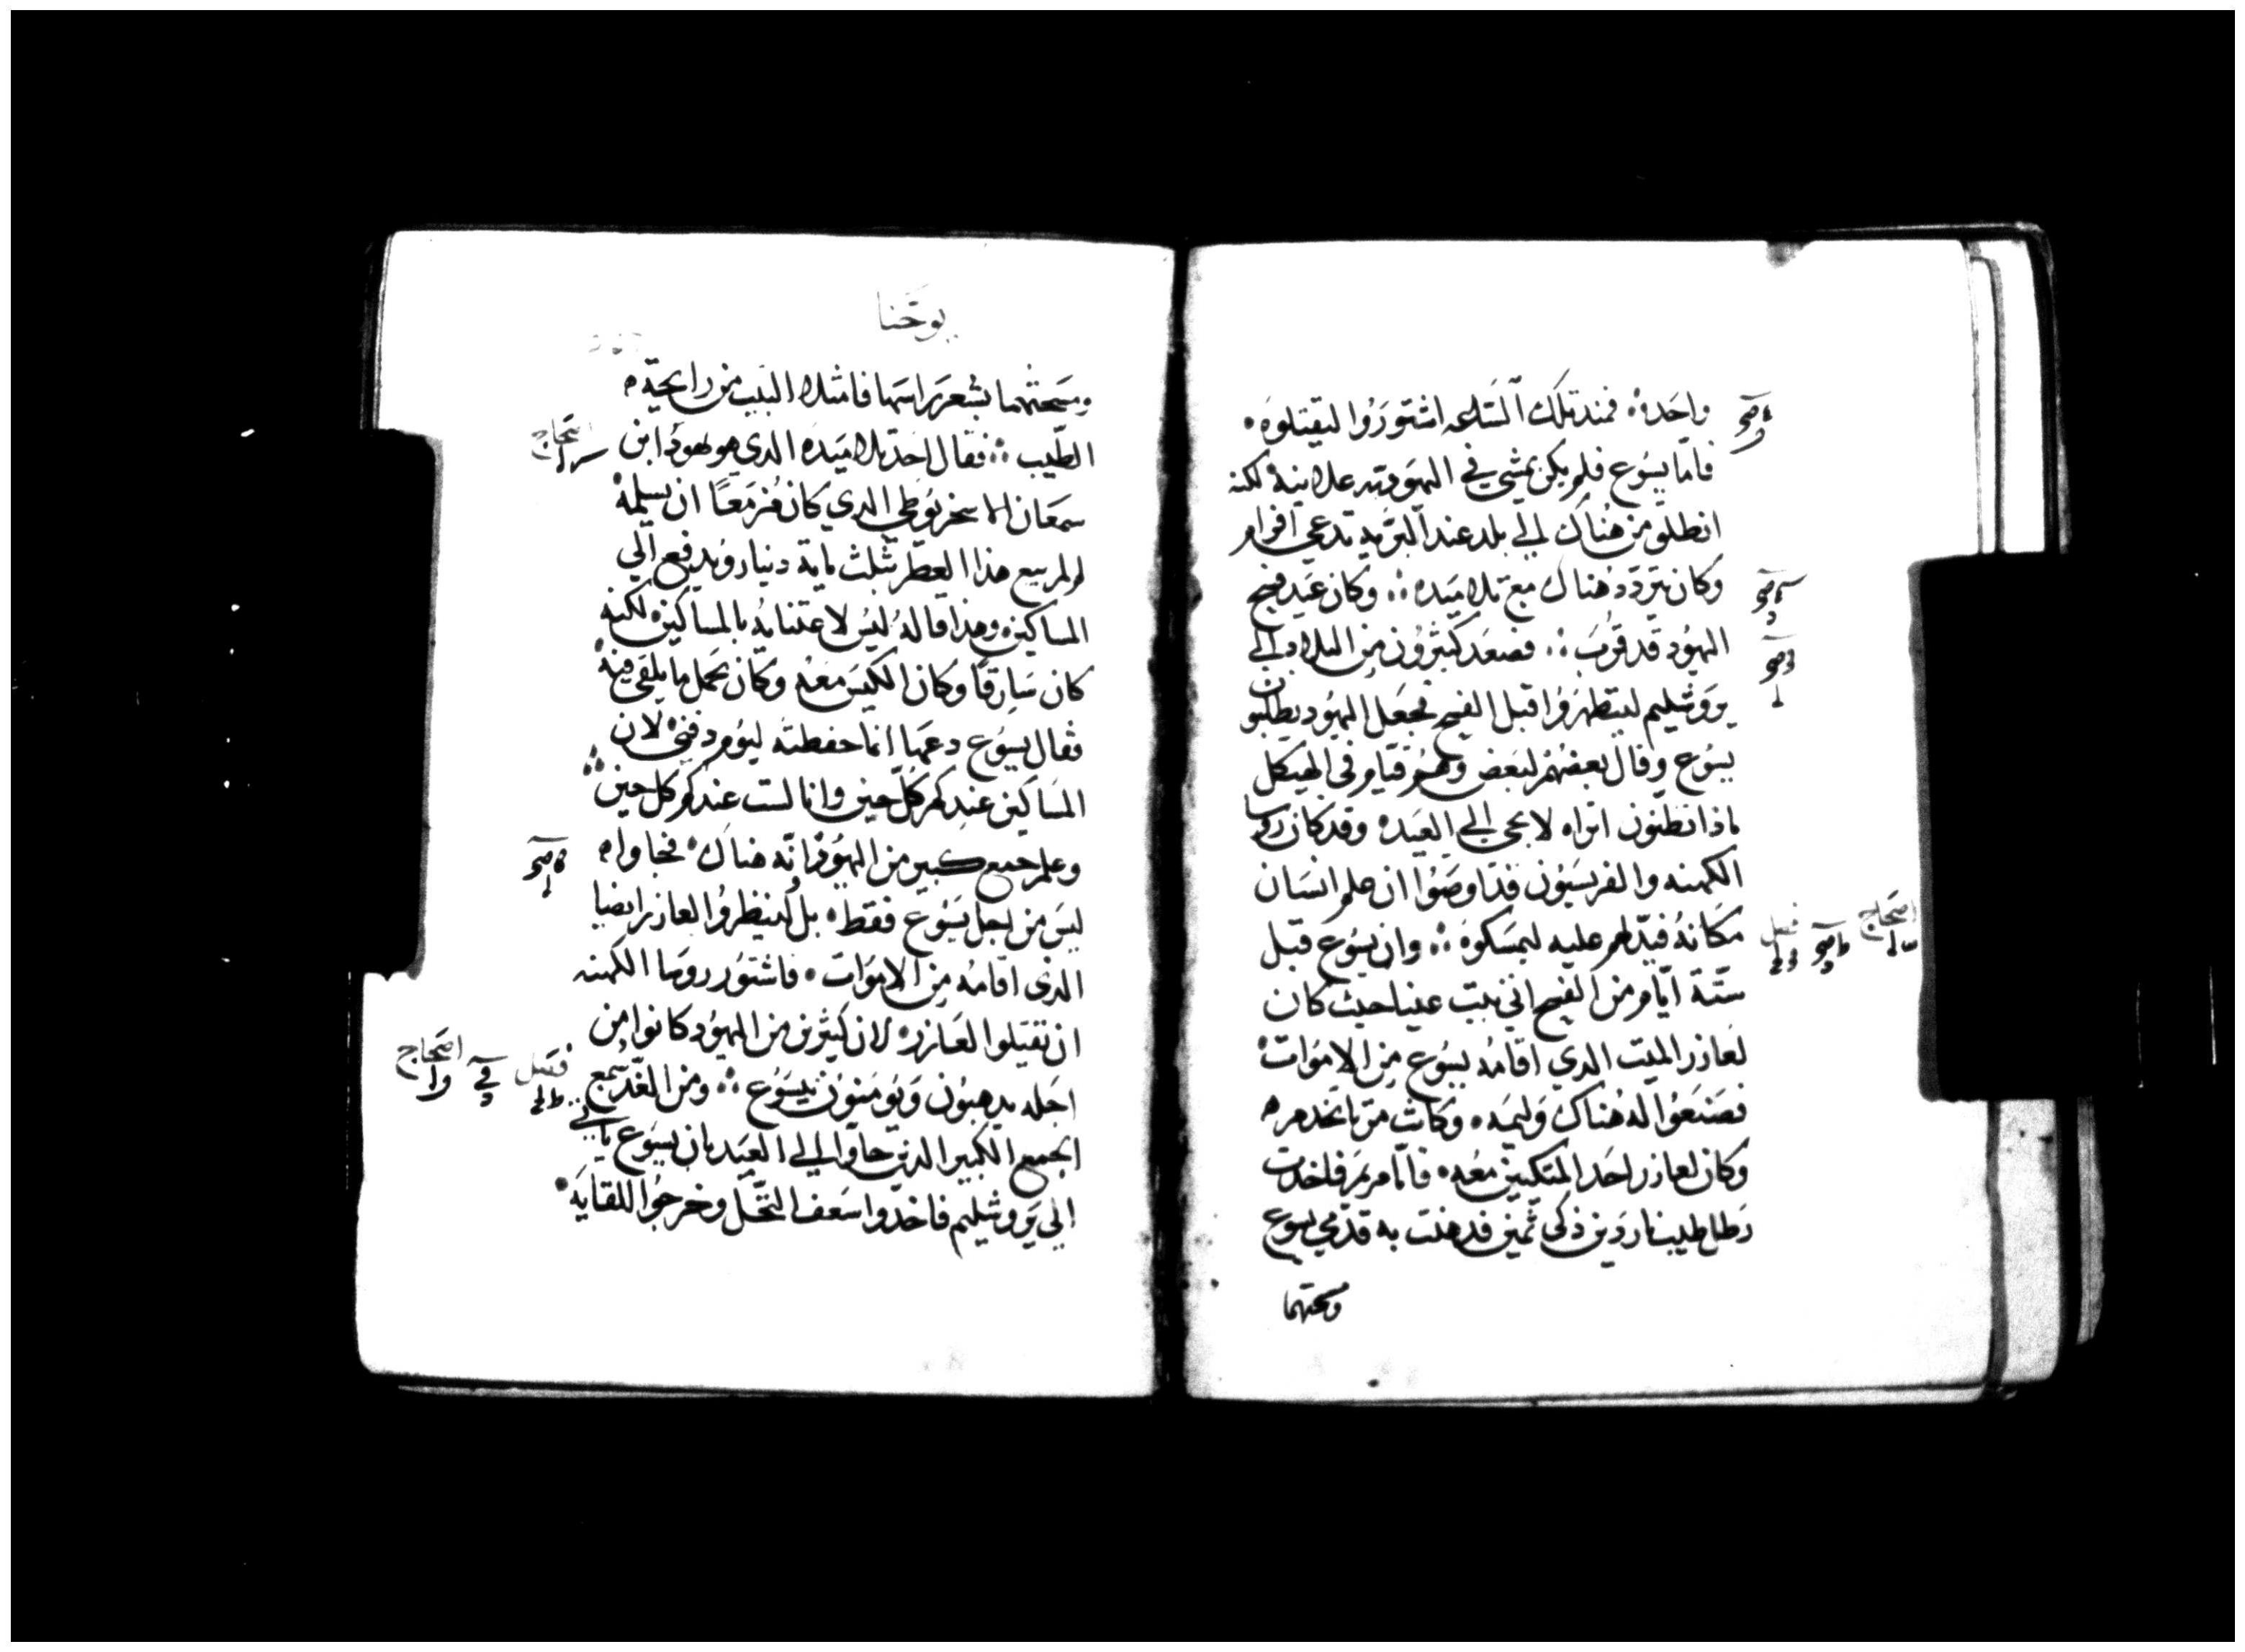 واحده فمند تلك الساعه اشتوروا ليقتلوه
فاما يسوع فلم يكن يمشي في اليهوديه علانيه لكنه
انطلق من هناك الي بلد عند البريه تدعي افرام
وكان يتردد هناك مع تلاميده وكان عيد فصح
اليهود قد قرب فصعد كثيرون من البلاد الي
يروشليم ليتطهروا قبل الفصح فجعل اليهود يطلبون
يسوع وقال بعضهم لبعض وهم قيام في الهيكل
ماذا تظنون اتراه لا يجي الي العيد وقد كان روسا
الكهنه والفريسيون قد اوصوا ان علم انسان
مكانه فيدلهم عليه ليمسكوه وان يسوع قبل
ستة ايام من الفصح اتي بيت عنيا حيث كان
لعازر الميت الدي اقامه يسوع من الاموات
فصنعوا له هناك وليمه وكانت مرتا تخدم
وكان لعازر احد المتكيين معه فاما مريم فاخدت
رطل طيب ناردين ذكي ثمين فدهنت به قدمي يسوع
ومسحتهما
يوحنا
ومسحتهما بشعر راسها فامتلا البيت من رايحة
الطيب فقال احد تلاميده الدي هو يهودا ابن
سمعان الاسخريوطي الدي كان مزمعا ان يسلمه
لم لم يبيع هذا العطر بثلث ماية دينار ويدفع الي
المساكين وهذا قاله ليس لاعتنايه بالمساكين لكنه
كان سارقا وكان الكيس معه وكان يحمل ما يلقي فيه
فقال يسوع دعها انما حفظته ليوم دفني لان
المساكين عندكم كل حين وانا لست عندكم كل حين
وعلم جمع كبير من اليهود انه هناك فجاوا
ليس من اجل يسوع فقط بل لينظروا العازر ايضا
الذي اقامه من الاموات فاشتور روسا الكهنه
ان يقتلوا العازر لان كثيرين من اليهود كانوا من
اجله يدهبون ويومنون بيسوع ومن الغد سمع
الجمع الكبير الدين جاوا الي العيد بان يسوع ياتي
الي يروشليم فاخذوا سعف النخل وخرجوا للقايه
اصحاح
فصل
اصحاح